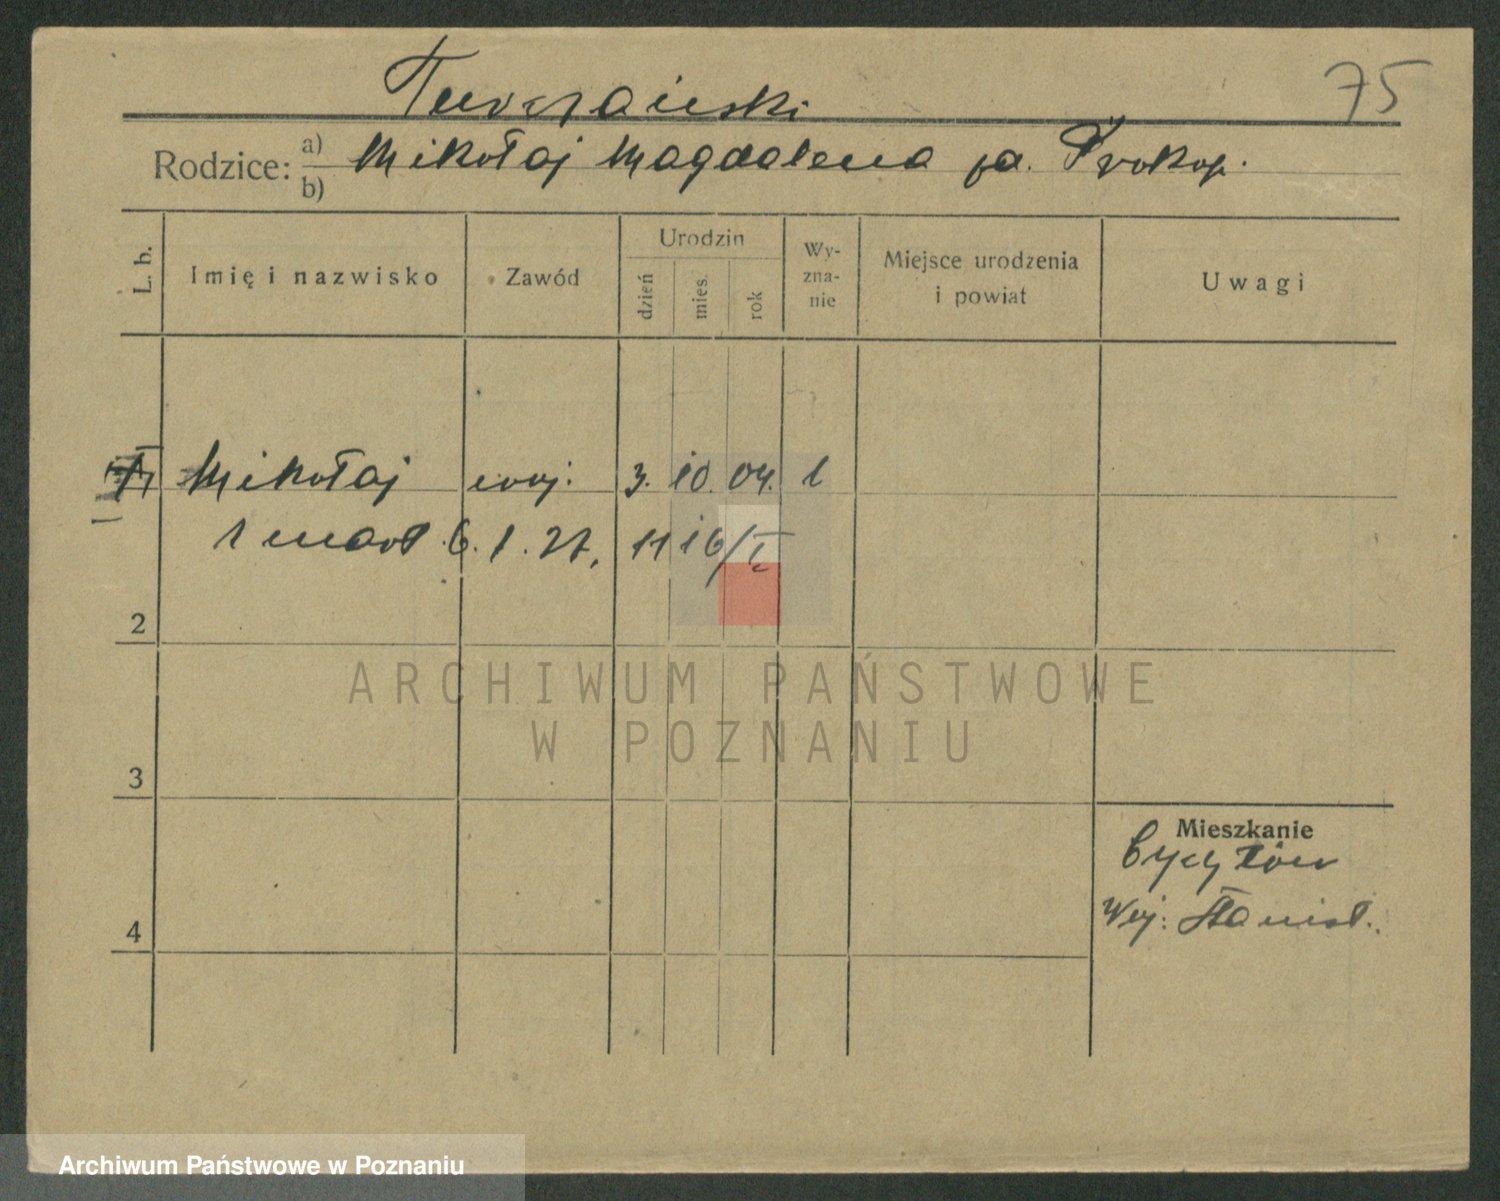 Turczański 75
Rodzice: a) Mikołaj Magdalena ja. Prokop.
b)
L. b. Imię i nazwisko Zawód Urodzin dzień mies. rok Wy- zna- nie Miejsce urodzenia i powiat Uwagi
Mikołaj woj. 3. 10. 04. 1
zmarł 6. 1. 27. 11 16/I
2
3
4
Mieszkanie
Woj. Stanisł.
ARCHIWUM PAŃSTWOWE
W POZNANIU
Archiwum Państwowe w Poznaniu